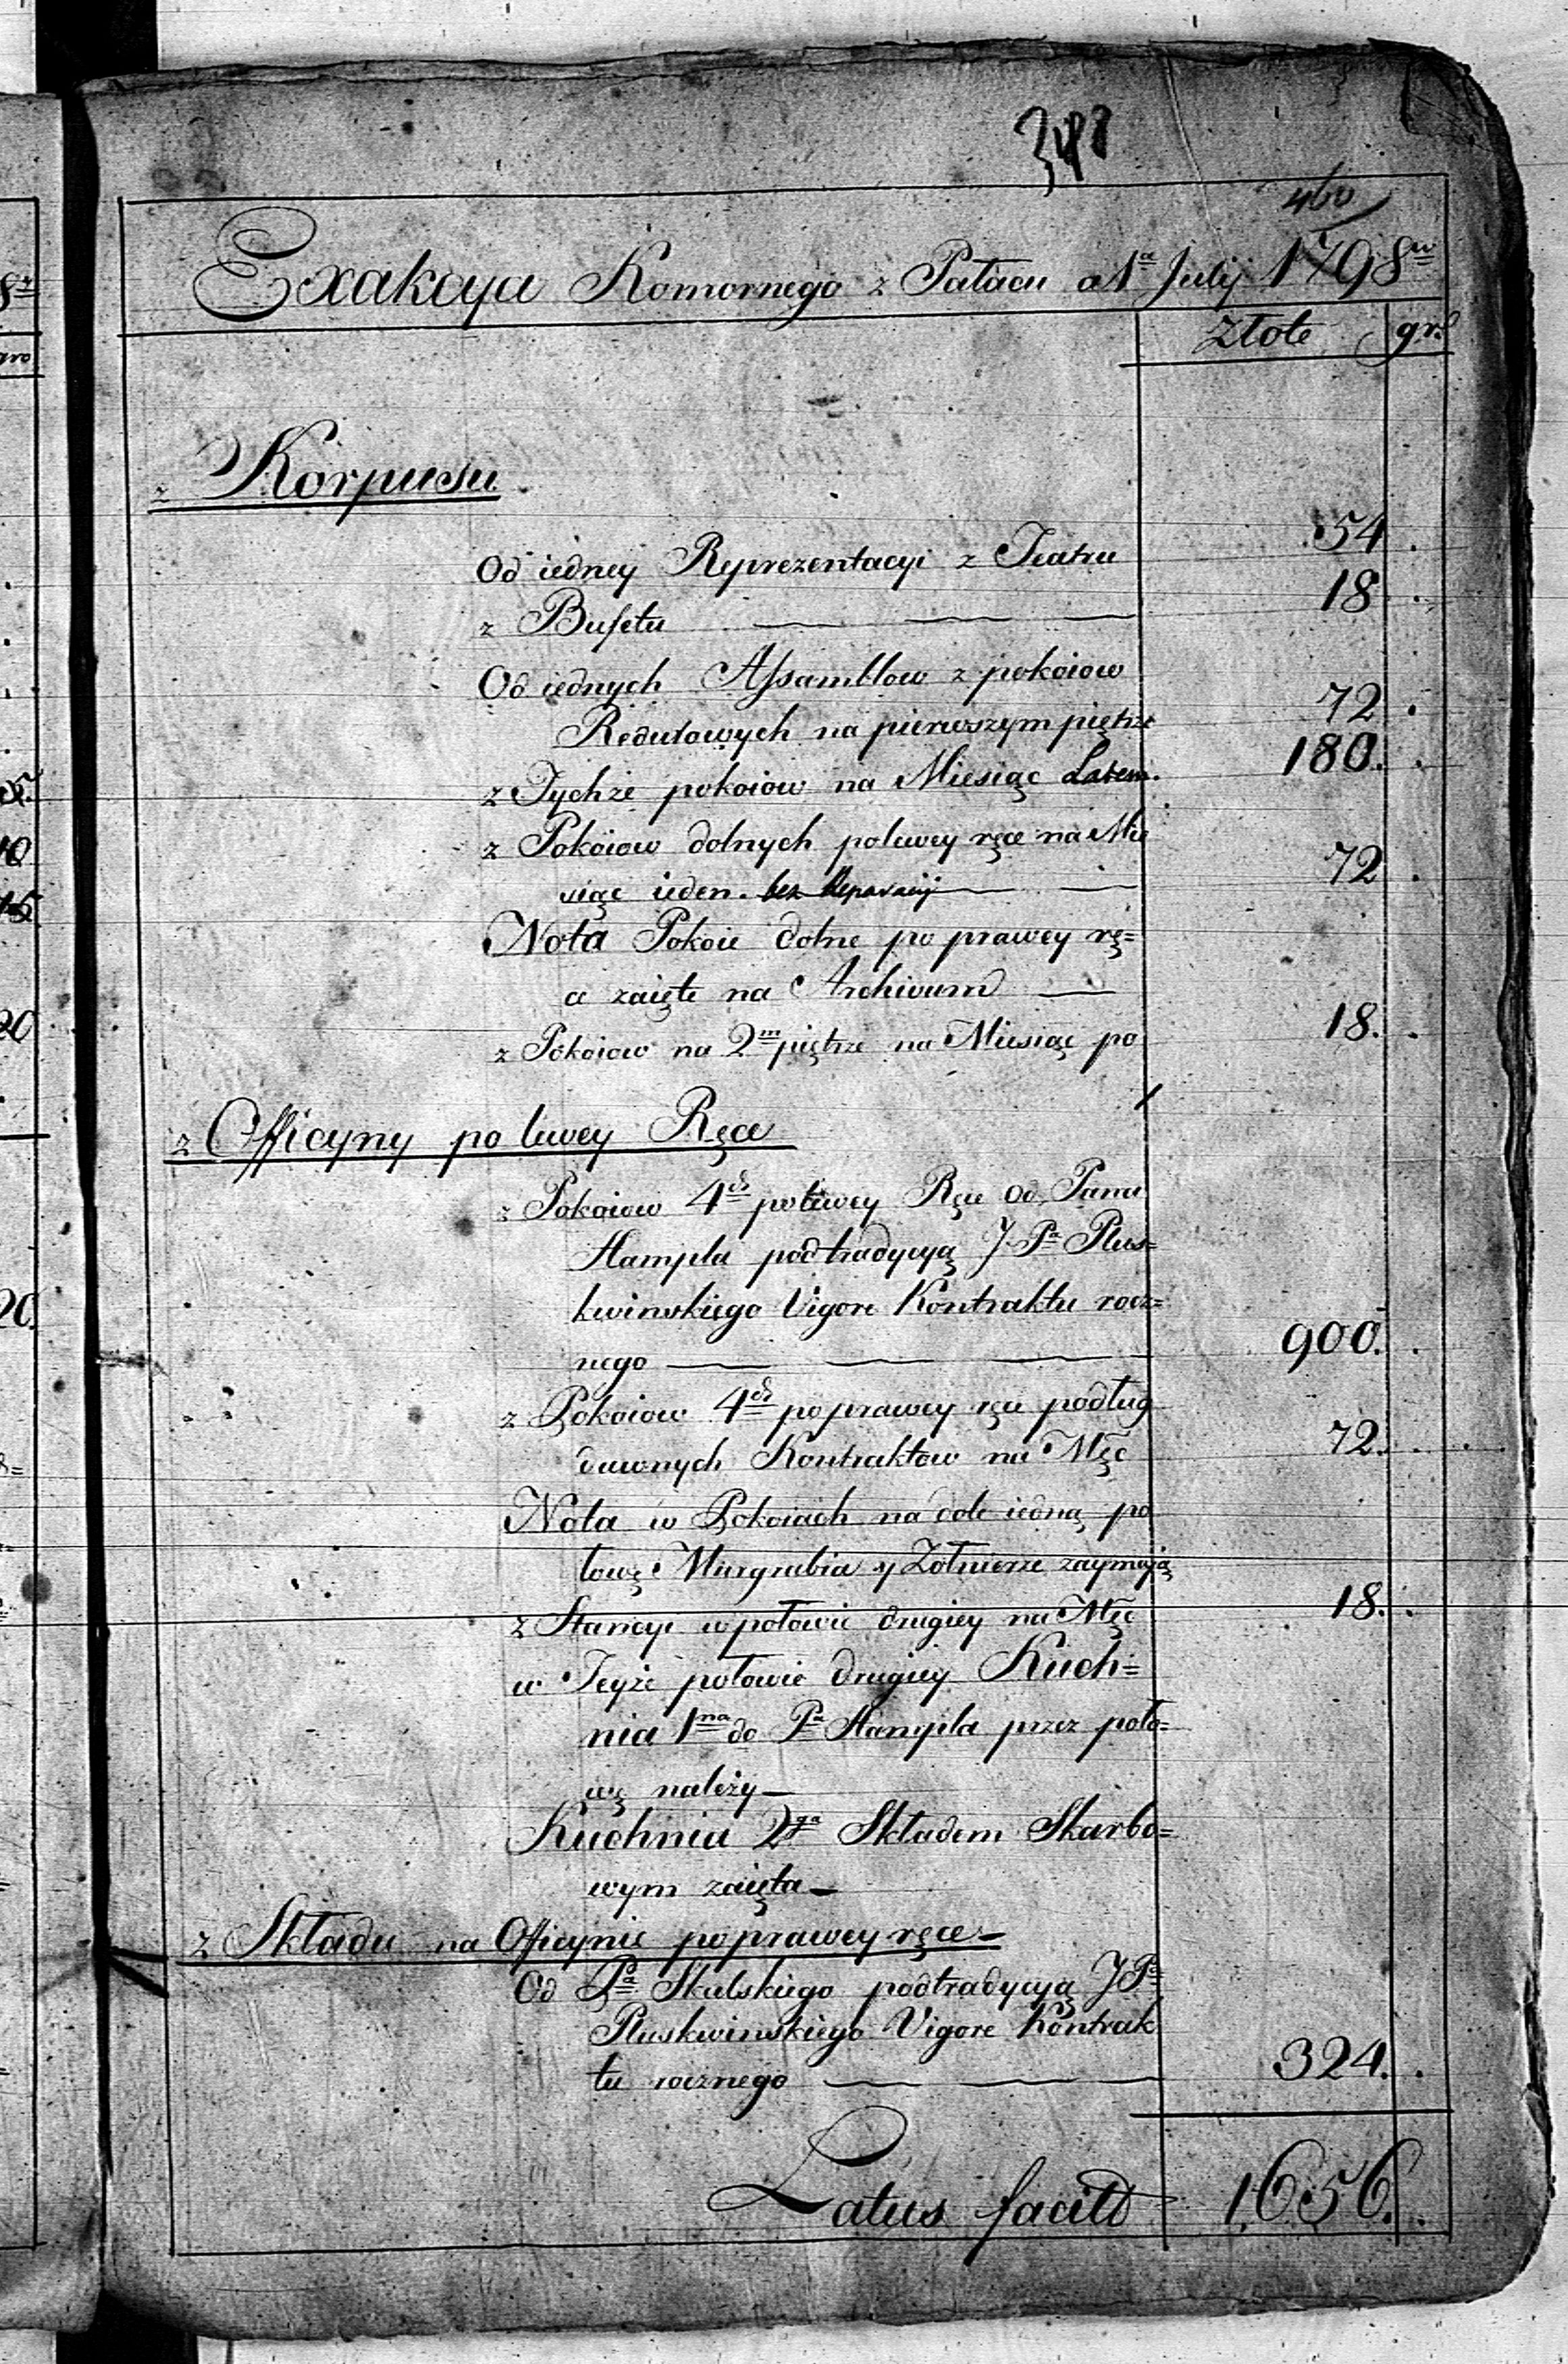 348
460
Exakcya Komornego z Pałacu a 1ª Julij 1798
złote gr
z Korpusu
Od iedney Reprezentacyi z Teatru 54 .
z Bufetu 18 .
Od iednych Assamblow z pokoiow
Redutowych na pierwszym piętrze 72 .
z Tychże pokoiow na Miesiąc Latem. 180. .
z Pokoiow dolnych polewey ręce na Mie
siąc ieden. bez Reparacij 72 .
Nota Pokoie dolne po prawey rę=
ce zaięte na Archivum
z Pokoiow na 2m piętrze na Miesiąc po 18. .
z Officyny po lewey Ręce
z Pokoiow 4ch polewey Ręce od Pana
Hampla pod tradycyą J Pa Plus=
kwinskiego Vigore Kontraktu rocz=
nego 900. .
z Pokoiow 4ch po prawey ręce podług
dawnych Kontraktow na Mśc 72. .
Nota w Pokoiach na dole iedną po
łowę Murgrabia y Zołnierze zaymują
z Stancyi w połowie drugiey na Mśc 18. .
w Teyże połowie drugiey Kuch=
nia 1na do Pa Hampla przez poło=
wę należy
Kuchnia 2ga Składem Skarbo=
wym zaięta
z Składu na Officynie po prawey ręce
Od Pa Skulskiego podtradycyą J Pa
Pluskwinskiego Vigore Kontrak
tu rocznego 324. .
Latus facit 1656. .